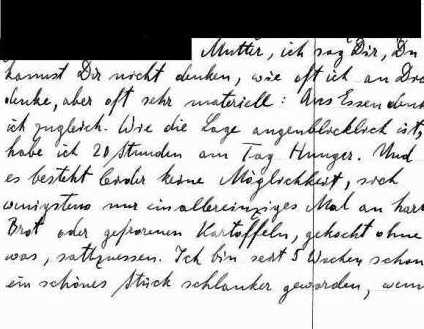 Mutter, ich sag Dir, Du
kannst Dir nicht denken, wie oft ich an Dich
denke, aber oft sehr materiell: Ans Essen denk
ich zugleich. Wie die Lage augenblicklich ist,
habe ich 20 Stunden am Tag Hunger. Und
es besteht leider keine Möglichkeit, sich
wenigstens nur ein allereinziges Mal an hart
Brot oder gefrorenen Kartoffeln, gekocht ohne
was, sattzuessen. Ich bin seit 5 Wochen schon
ein schönes Stück schlanker geworden, wenn